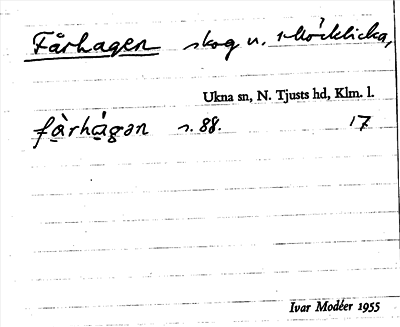 Fårhagen skog n. Mörklicka,
Ukna sn, N. Tjusts hd, Klm. l.
fà̱rhá̱gən s. 88. 17
Ivar Modéer 1955